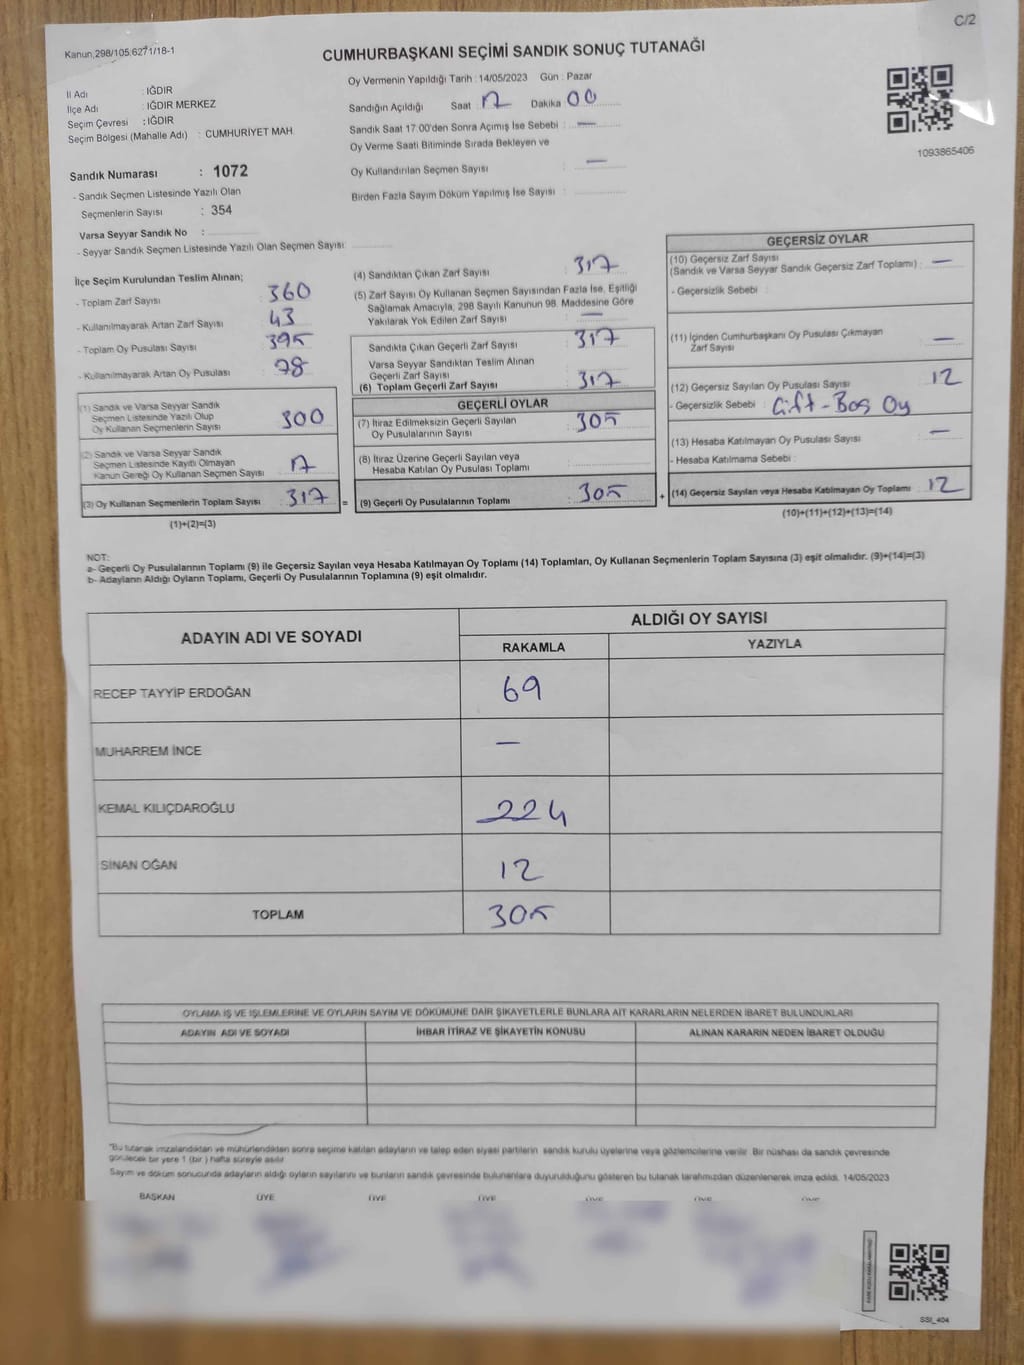 C/2
Kanun,298/105.6271/18-1
CUMHURBAŞKANI SEÇİMİ SANDIK SONUÇ TUTANAĞI
İl Adı : IĞDIR
İlçe Adı : IĞDIR MERKEZ
Seçim Çevresi : IĞDIR
Seçim Bölgesi (Mahalle Adı) : CUMHURİYET MAH.
Sandık Numarası : 1072
- Sandık Seçmen Listesinde Yazılı Olan
Seçmenlerin Sayısı : 354
Varsa Seyyar Sandık No :
- Seyyar Sandık Seçmen Listesinde Yazılı Olan Seçmen Sayısı:
Oy Vermenin Yapıldığı Tarih : 14/05/2023 Gün : Pazar
Sandığın Açıldığı Saat 17 Dakika 00
Sandık Saat 17:00'den Sonra Açımış İse Sebebi : —
Oy Verme Saati Bitiminde Sırada Bekleyen ve
Oy Kullandırılan Seçmen Sayısı : —
Birden Fazla Sayım Döküm Yapılmış İse Sayısı :
1093865406
İlçe Seçim Kurulundan Teslim Alınan;
- Toplam Zarf Sayısı : 360
- Kullanılmayarak Artan Zarf Sayısı : 43
- Toplam Oy Pusulası Sayısı : 395
- Kullanılmayarak Artan Oy Pusulası : 78
(1) Sandık ve Varsa Seyyar Sandık
Seçmen Listesinde Yazılı Olup
Oy Kullanan Seçmenlerin Sayısı : 300
(2) Sandık ve Varsa Seyyar Sandık
Seçmen Listesinde Kayıtlı Olmayan
Kanun Gereği Oy Kullanan Seçmen Sayısı : 17
(3) Oy Kullanan Seçmenlerin Toplam Sayısı : 317 =
(1)+(2)=(3)
(4) Sandıktan Çıkan Zarf Sayısı : 317
(5) Zarf Sayısı Oy Kullanan Seçmen Sayısından Fazla İse, Eşitliği
Sağlamak Amacıyla, 298 Sayılı Kanunun 98. Maddesine Göre
Yakılarak Yok Edilen Zarf Sayısı : —
Sandıkta Çıkan Geçerli Zarf Sayısı : 317
Varsa Seyyar Sandıktan Teslim Alınan
Geçerli Zarf Sayısı :
(6) Toplam Geçerli Zarf Sayısı : 317
GEÇERLİ OYLAR
(7) İtiraz Edilmeksizin Geçerli Sayılan
Oy Pusulalarının Sayısı : 305
(8) İtiraz Üzerine Geçerli Sayılan veya
Hesaba Katılan Oy Pusulası Toplamı :
(9) Geçerli Oy Pusulalarının Toplamı : 305 +
GEÇERSİZ OYLAR
(10) Geçersiz Zarf Sayısı
(Sandık ve Varsa Seyyar Sandık Geçersiz Zarf Toplamı) : —
- Geçersizlik Sebebi :
(11) İçinden Cumhurbaşkanı Oy Pusulası Çıkmayan
Zarf Sayısı : —
(12) Geçersiz Sayılan Oy Pusulası Sayısı : 12
- Geçersizlik Sebebi : Çift - Boş Oy
(13) Hesaba Katılmayan Oy Pusulası Sayısı : —
- Hesaba Katılmama Sebebi :
(14) Geçersiz Sayılan veya Hesaba Katılmayan Oy Toplamı : 12
(10)+(11)+(12)+(13)=(14)
NOT:
a- Geçerli Oy Pusulalarının Toplamı (9) ile Geçersiz Sayılan veya Hesaba Katılmayan Oy Toplamı (14) Toplamları, Oy Kullanan Seçmenlerin Toplam Sayısına (3) eşit olmalıdır. (9)+(14)=(3)
b- Adayların Aldığı Oyların Toplamı, Geçerli Oy Pusulalarının Toplamına (9) eşit olmalıdır.
ADAYIN ADI VE SOYADI
ALDIĞI OY SAYISI
RAKAMLA YAZIYLA
RECEP TAYYİP ERDOĞAN 69
MUHARREM İNCE —
KEMAL KILIÇDAROĞLU 224
SİNAN OĞAN 12
TOPLAM 305
OYLAMA İŞ VE İŞLEMLERİNE VE OYLARIN SAYIM VE DÖKÜMÜNE DAİR ŞİKAYETLERLE BUNLARA AİT KARARLARIN NELERDEN İBARET BULUNDUKLARI
ADAYIN ADI VE SOYADI İHBAR İTİRAZ VE ŞİKAYETİN KONUSU ALINAN KARARIN NEDEN İBARET OLDUĞU
"Bu tutanak imzalandıktan ve mühürlendikten sonra seçime katılan adayların ve talep eden siyasi partilerin sandık kurulu üyelerine veya gözlemcilerine verilir. Bir nüshası da sandık çevresinde
görülecek bir yere 1 (bir ) hafta süreyle asılır.
Sayım ve döküm sonucunda adayların aldığı oyların sayılarını ve bunların sandık çevresinde bulunanlara duyurulduğunu gösteren bu tutanak tarafımızdan düzenlenerek imza edildi. 14/05/2023
BAŞKAN ÜYE ÜYE ÜYE ÜYE ÜYE ÜYE
SSI_404